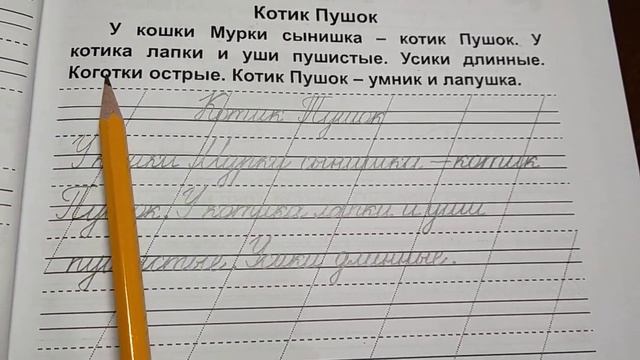 Котик Пушок
У кошки Мурки сынишка – котик Пушок. У
котика лапки и уши пушистые. Усики длинные.
Коготки острые. Котик Пушок – умник и лапушка.
Котик Пушок
У кошки Мурки сынишки – котик
Пушок. У котика лапки и уши
пушистые. Усики длинные.